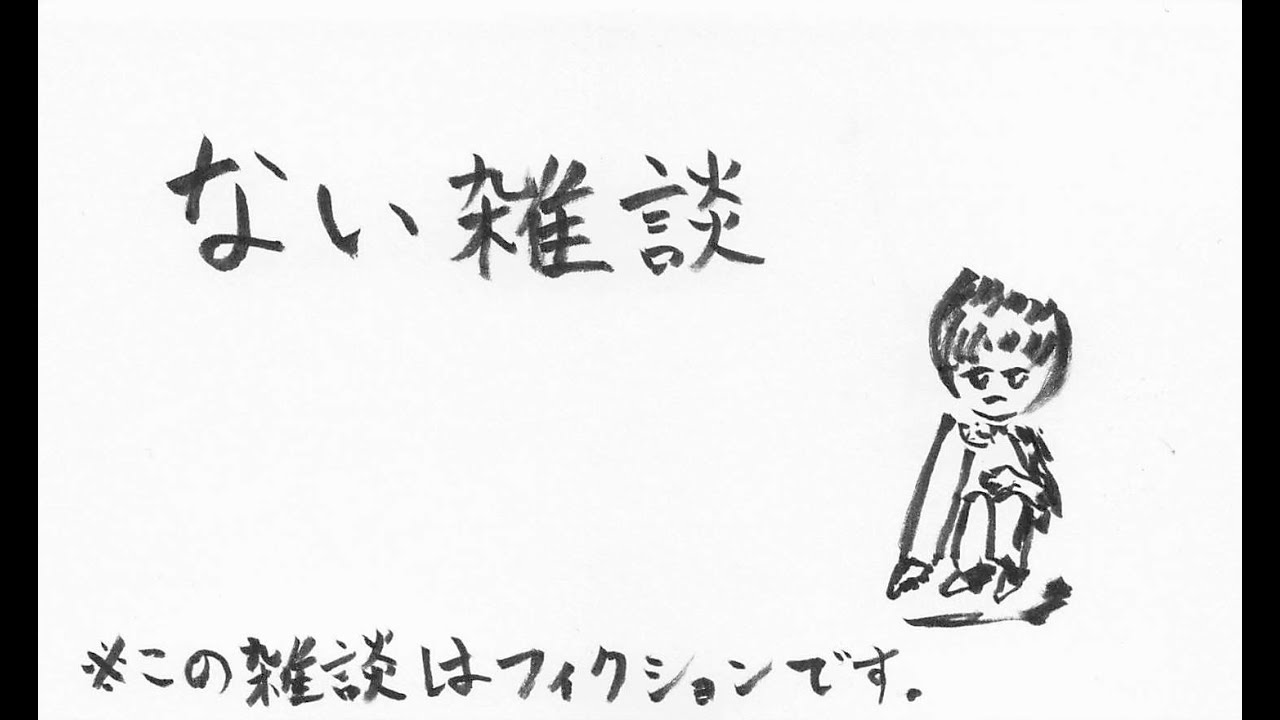 ない雑談
※この雑談はフィクションです。